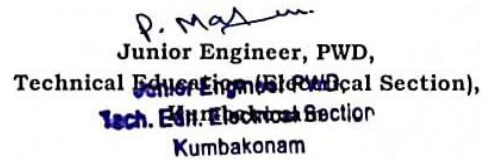 P. Ma
Junior Engineer, PWD,
Technical Education (Electrical Section),
Kumbakonam
Junior Engineer PWD,
Tech. Edn. Electrical Section
Kumbakonam